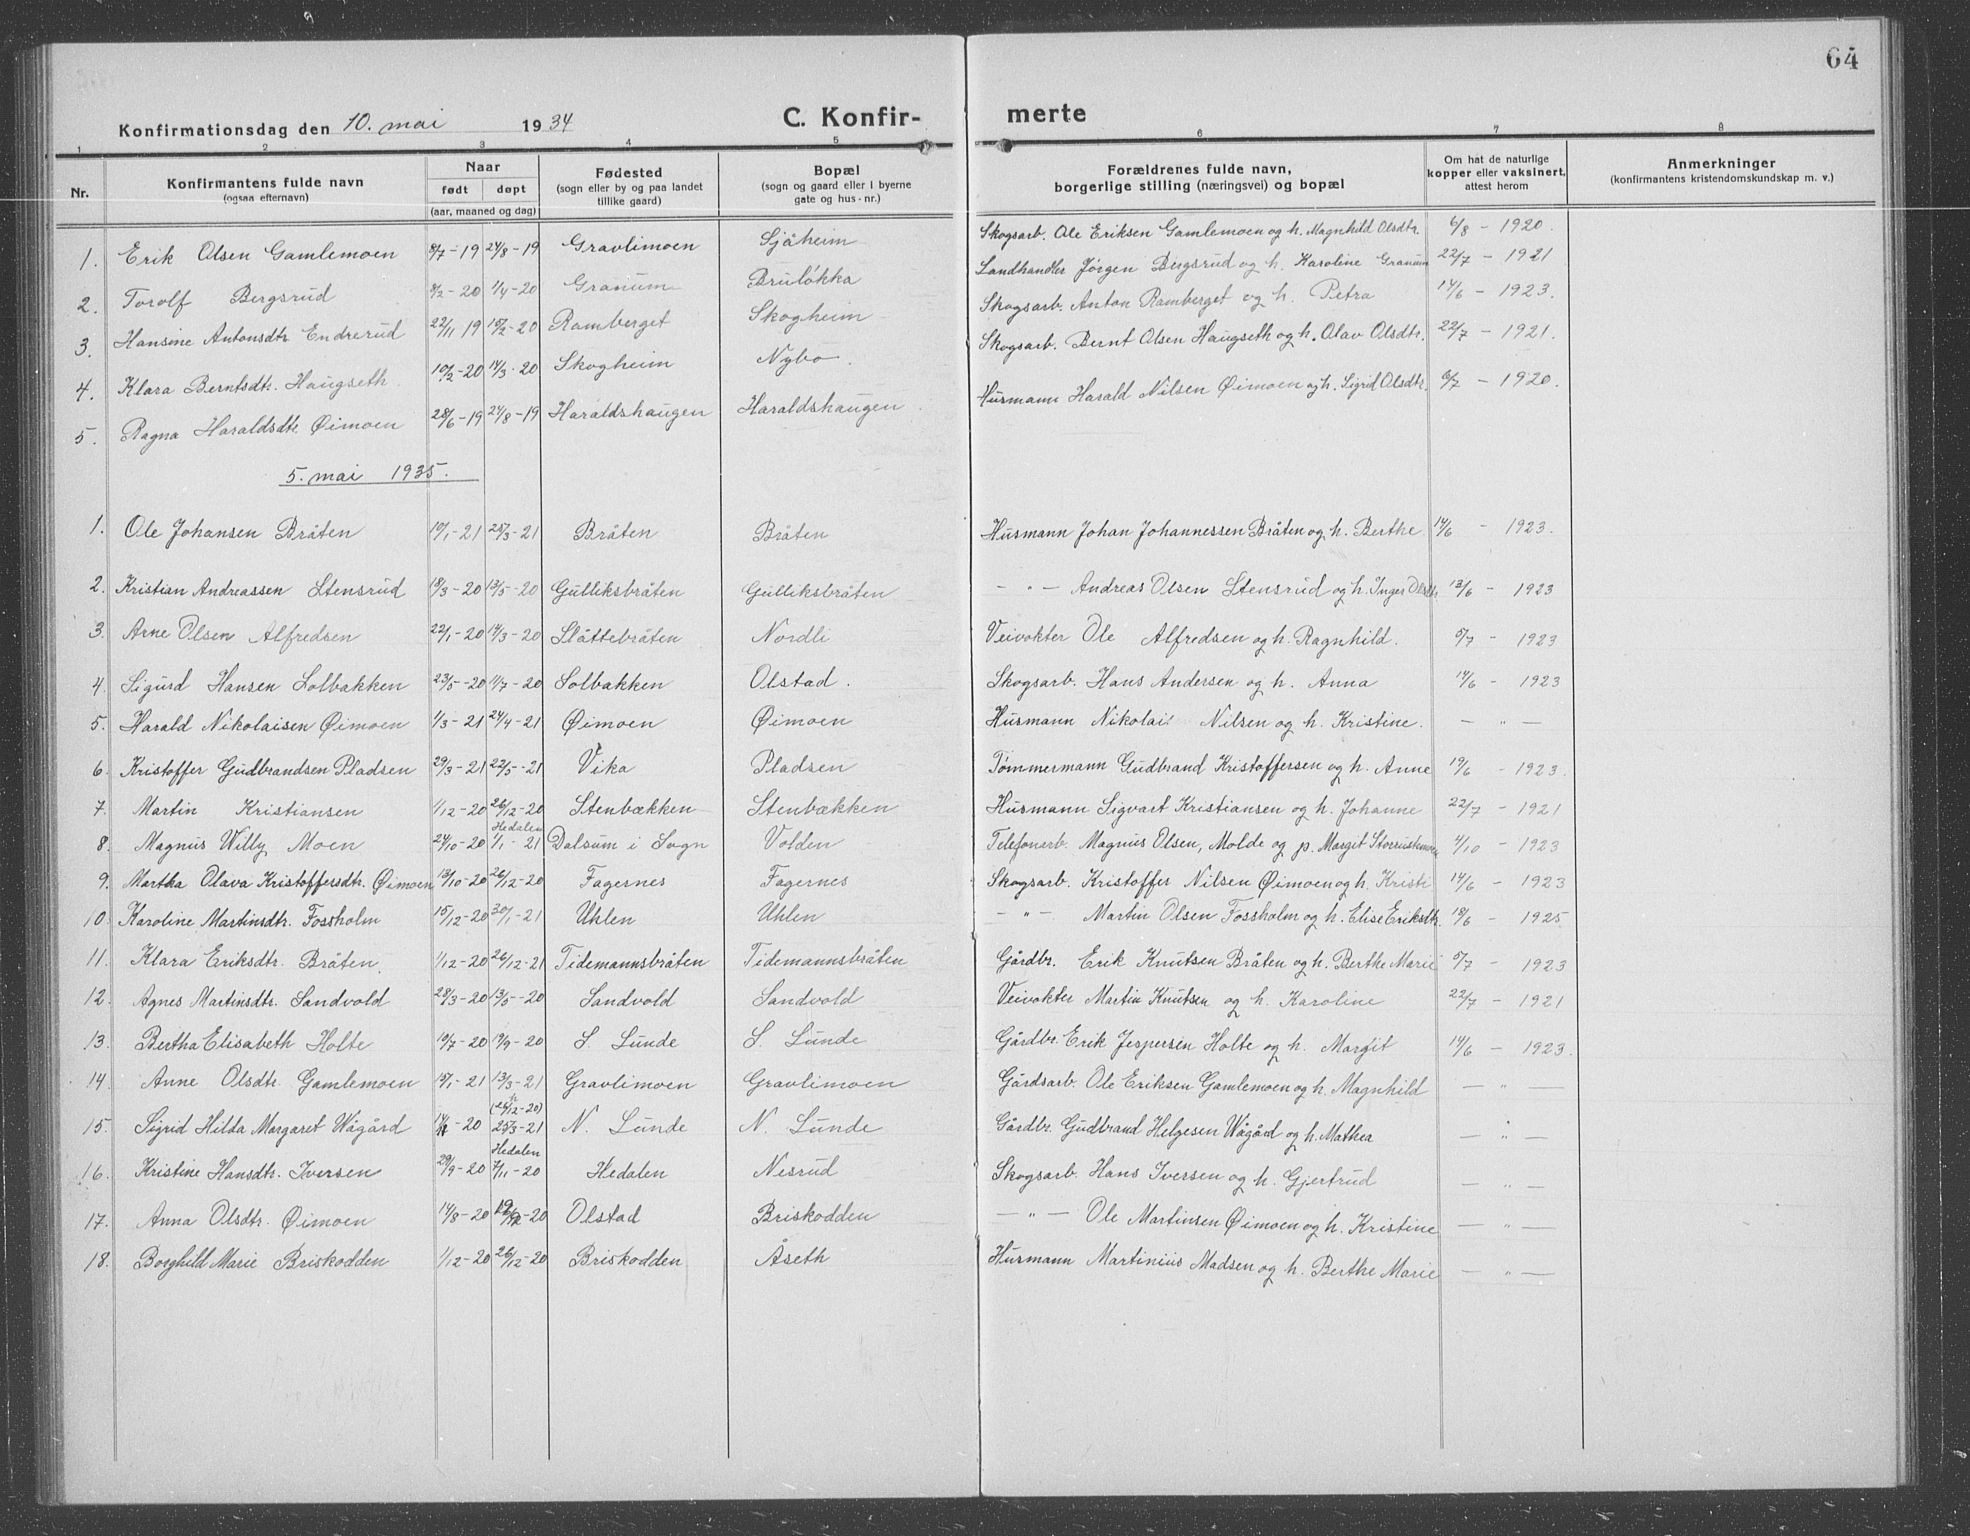 64
Konfirmationsdag den 10. mai 1934 C. Konfir- merte
1 2 3 4 5 6 7 8
Nr. Konfirmantens fulde navn (ogsaa efternavn) Naar født døpt (aar, maaned og dag) Fødested (sogn eller by og paa landet tillike gaard) Bopæl (sogn og gaard eller i byerne gate og hus-nr.) Forældrenes fulde navn, borgerlige stilling (næringsvei) og bopæl Om hat de naturlige kopper eller vaksinert, attest herom Anmerkninger (konfirmantens kristendomskundskap m. v.)
1. Erik Olsen Gamlemoen 8/7-19 24/8-19 Gravlimoen Sjåheim Skogsarb. Ole Eriksen Gamlemoen og h. Magnhild Olsdtr. 6/8 - 1920.
2. Torolf Bergsrud 8/2-20 1/4-20 Granum Bruløkka Landhandler Jørgen Bergsrud og h. Karoline Granum 22/7 - 1921
3. Hansine Antonsdtr. Endrerud 22/11 19 15/2-20 Ramberget Skogheim Skogsarb. Anton Ramberget og h. Petra 14/6 - 1923.
4. Klara Berntsdtr. Haugseth 10/2-20 14/3-20 Skogheim Nybo. Skogsarb. Bernt Olsen Haugseth og h. Olav Olsdtr. 22/7 - 1921.
5. Ragna Haraldsdtr. Øimoen 28/6-19 24/8-19 Haraldshaugen Haraldshaugen Husmann Harald Nilsen Øimoen og h. Sigrid Olsdtr. 6/7 - 1920.
5. mai 1935.
1. Ole Johansen Bråten 10/1-21 28/3-21 Bråten Bråten Husmann Johan Johannessen Bråten og h. Berthe 14/6 - 1923.
2. Kristian Andreassen Stensrud 18/3-20 13/5-20 Gulliksbråten Gulliksbråten - " - Andreas Olsen Stensrud og h. Inger Olsdtr. 13/6 - 1923
3. Arne Olsen Alfredsen 22/1-20 14/3-20 Slåttebråten Nordli Veivokter Ole Alfredsen og h. Ragnhild. 5/7 - 1923
4. Sigurd Hansen Solbakken 23/5-20 11/7-20 Solbakken Olstad. Skogsarb. Hans Andersen og h. Anna 14/6 - 1923
5. Harald Nikolaisen Øimoen 1/3-21 24/4-21 Øimoen Øimoen Husmann Nikolai Nilsen og h. Kristine. - " -
6. Kristoffer Gudbrandsen Pladsen 29/3-21 22/5-21 Vika Pladsen Tømmermann Gudbrand Kristoffersen og h. Anne 19/6 - 1923.
7. Martin Kristiansen 1/12-20 26/12-20 Stenbækken Stenbækken Husmann Sigvart Kristiansen og h. Johanne 22/7 - 1921
8. Magnus Willy Moen 24/10-20 Hedalen 1/1-21 Dalsum i Sogn Volden Telefonarb. Magnus Olsen, Molde og p. Margit Storrustemoen 4/10 - 1923
9. Martha Olava Kristoffersdtr. Øimoen 13/10-20 26/12-20 Fagernes Fagernes Skogsarb. Kristoffer Nilsen Øimoen og h. Kristi 14/6 - 1923
10. Karoline Martinsdtr. Fossholm 15/12-20 30/1-21 Uhlen Uhlen - " - Martin Olsen Fossholm og h. Elise Eriksdtr. 18/6 - 1925
11. Klara Eriksdtr. Bråten. 1/12-20 26/12-21 Tidemannsbråten Tidemannsbråten Gårdbr. Erik Knutsen Bråten og h. Berthe Marie 5/7 - 1923
12. Agnes Martinsdtr. Sandvold 28/3-20 13/5-20 Sandvold Sandvold Veivokter Martin Knutsen og h. Karoline 22/7 - 1921
13. Bertha Elisabeth Holte 10/7-20 19/9-20 S. Lunde S. Lunde Gårdbr. Erik Jespersen Holte og h. Margit 14/6 - 1923.
14. Anne Olsdtr. Gamlemoen 15/1-21 13/3-21 Gravlimoen Gravlimoen Gårdsarb. Ole Eriksen Gamlemoen og h. Magnhild - " -
15. Sigrid Hilda Margaret Wågård -20 (26/12-20) 25/3-21 N. Lunde N. Lunde Gårdbr. Gudbrand Helgesen Wågård og h. Mathea - " -
16. Kristine Hansdtr. Iversen 29/9-20 Hedalen 7/11-20 Hedalen Nesrud Skogsarb. Hans Iversen og h. Gjertrud - " -
17. Anna Olsdtr. Øimoen 14/8-20 -20 Olstad Briskodden - " - Ole Martinsen Øimoen og h. Kristine - " -
18. Borghild Marie Briskodden 1/12-20 26/12-20 Briskodden Åseth Husmann Martinius Madsen og h. Berthe Marie - " -